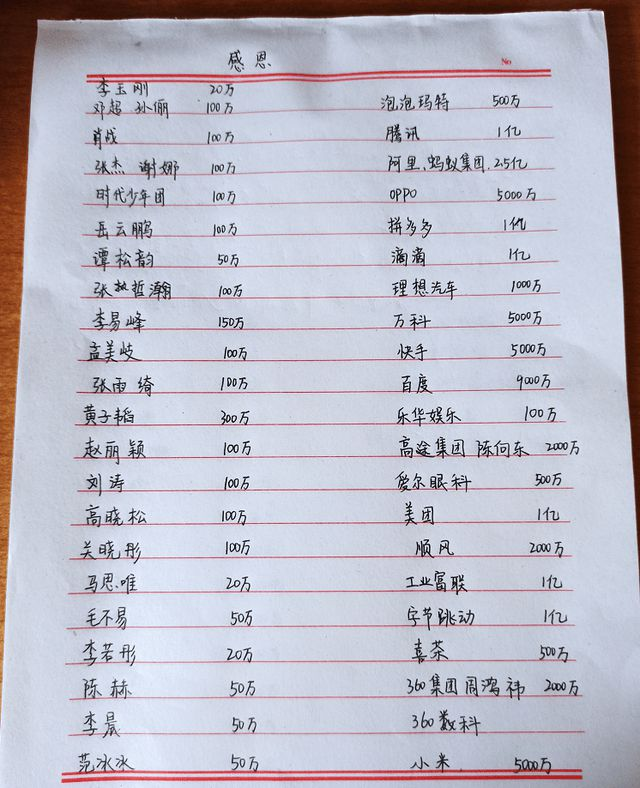 感恩
No
李玉刚 20万
邓超 孙俪 100万 泡泡玛特 500万
肖战 100万 腾讯 1亿
张杰 谢娜 100万 阿里、蚂蚁集团 2.5亿
时代少年团 100万 OPPO 5000万
岳云鹏 100万 拼多多 1亿
谭松韵 50万 滴滴 1亿
张哲瀚 100万 理想汽车 1000万
李易峰 150万 万科 5000万
孟美岐 100万 快手 5000万
张雨绮 100万 百度 9000万
黄子韬 300万 乐华娱乐 100万
赵丽颖 100万 高途集团 陈向东 2000万
刘涛 100万 爱尔眼科 500万
高晓松 100万 美团 1亿
关晓彤 100万 顺风 2000万
马思唯 20万 工业富联 1亿
毛不易 50万 字节跳动 1亿
李若彤 20万 喜茶 500万
陈赫 50万 360集团 周鸿祎 2000万
李晨 50万 360数科
范冰冰 50万 小米 5000万